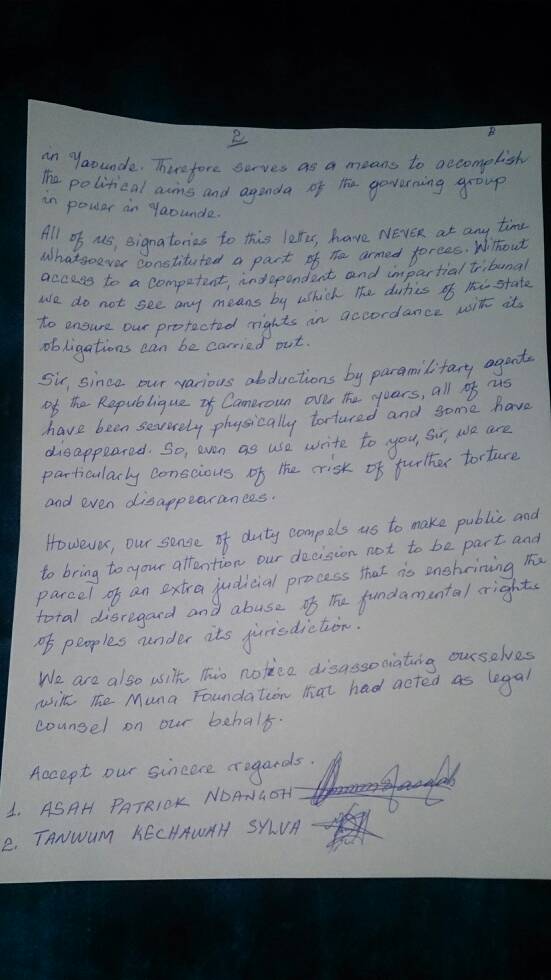 2
B
in Yaounde. Therefore serves as a means to accomplish
the political aims and agenda of the governing group
in power in Yaounde.
All of us, signatories to this letter, have NEVER at any time
whatsoever constituted a part of the armed forces. Without
access to a competent, independent and impartial tribunal
we do not see any means by which the duties of this state
to ensure our protected rights in accordance with its
obligations can be carried out.
Sir, since our various abductions by paramilitary agents
of the Republique of Cameroun over the years, all of us
have been severely physically tortured and some have
disappeared. So, even as we write to you, Sir, we are
particularly conscious of the risk of further torture
and even disappearances.
However, our sense of duty compels us to make public and
to bring to your attention our decision not to be part and
parcel of an extra judicial process that is enshrining the
total disregard and abuse of the fundamental rights
of peoples under its jurisdiction.
We are also with this notice disassociating ourselves
with the Muna Foundation that had acted as legal
counsel on our behalf.
Accept our sincere regards.
1. ASAH PATRICK NDANGOH
2. TANWUM KECHAWAH SYLVA